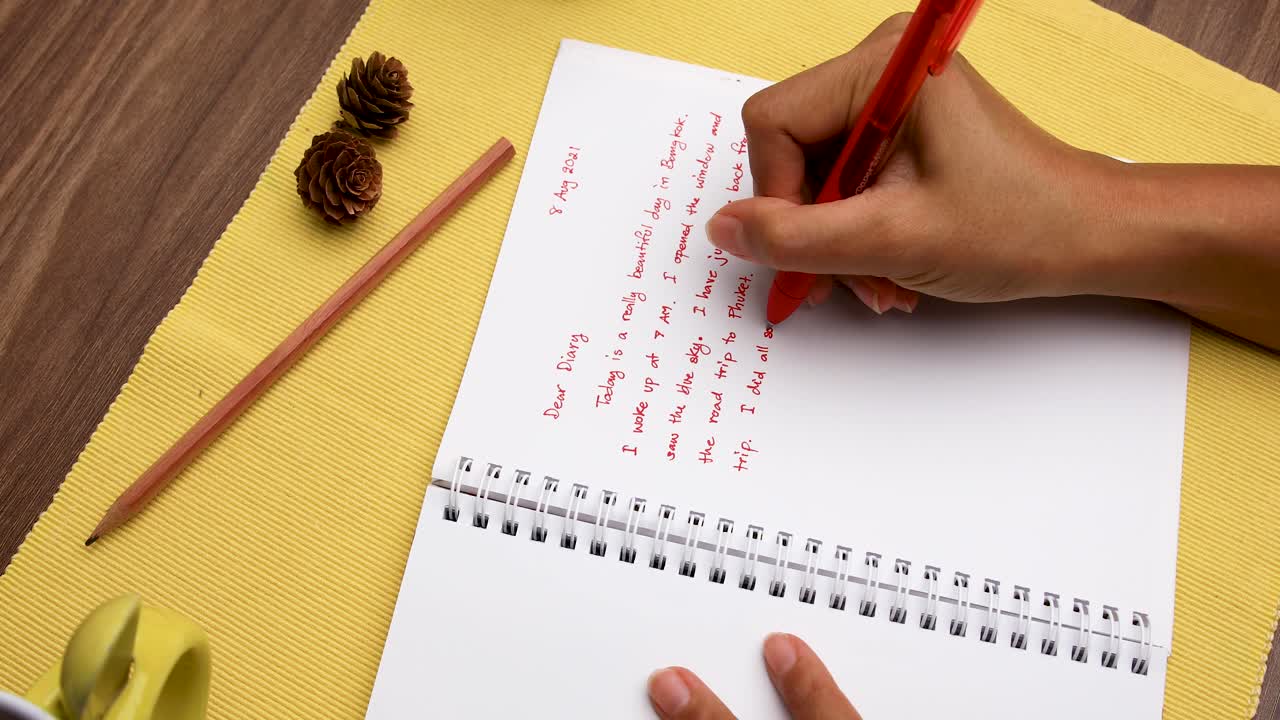 8 Aug 2021
Dear Diary
Today is a really beautiful day in Bangkok.
I woke up at 7 AM. I opened the window and
saw the blue sky. I have back
the road trip to Phuket.
trip. I did all